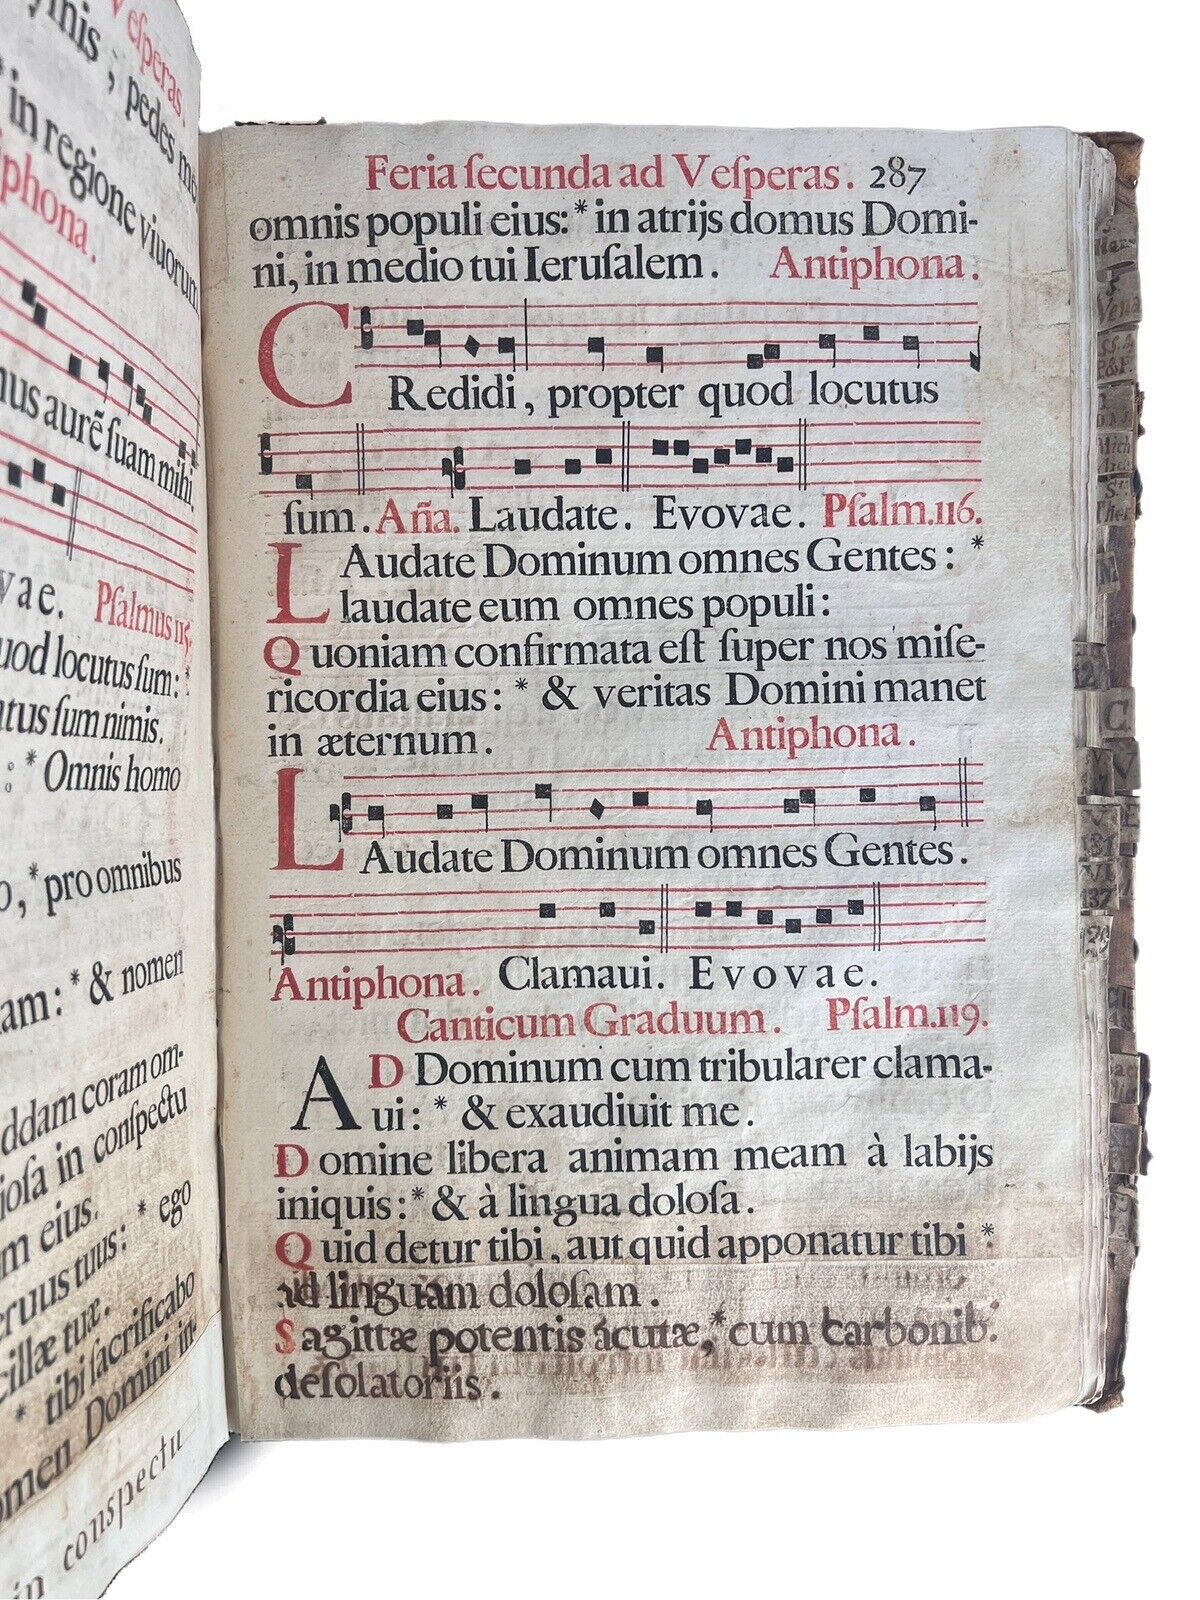 Veſperas.
pedes me
in regione viuorum
iphona.
mus aurẽ ſuam mihi.
vae. Pſalmus 115.
uod locutus ſum: *
atus ſum nimis.
: * Omnis homo
o, * pro omnibus
am: * & nomen
ddam coram om-
ioſa in conſpectu
m eius.
eruus tuus: * ego
cillæ tuæ.
* tibi ſacrificabo
omen Domini in-
in conspectu
Feria ſecunda ad Veſperas. 287
omnis populi eius: * in atrijs domus Domi-
ni, in medio tui Ieruſalem. Antiphona.
CRedidi, propter quod locutus
ſum. Aña. Laudate. Evovae. Pſalm.116.
LAudate Dominum omnes Gentes: *
laudate eum omnes populi:
Quoniam confirmata eſt ſuper nos miſe-
ricordia eius: * & veritas Domini manet
in æternum. Antiphona.
LAudate Dominum omnes Gentes.
Antiphona. Clamaui. Evovae.
Canticum Graduum. Pſalm.119.
AD Dominum cum tribularer clama-
ui: * & exaudiuit me.
Domine libera animam meam à labijs
iniquis: * & à lingua doloſa.
Quid detur tibi, aut quid apponatur tibi *
ad linguam doloſam.
Sagittæ potentis acutæ, * cum carbonib.
deſolatoriis.